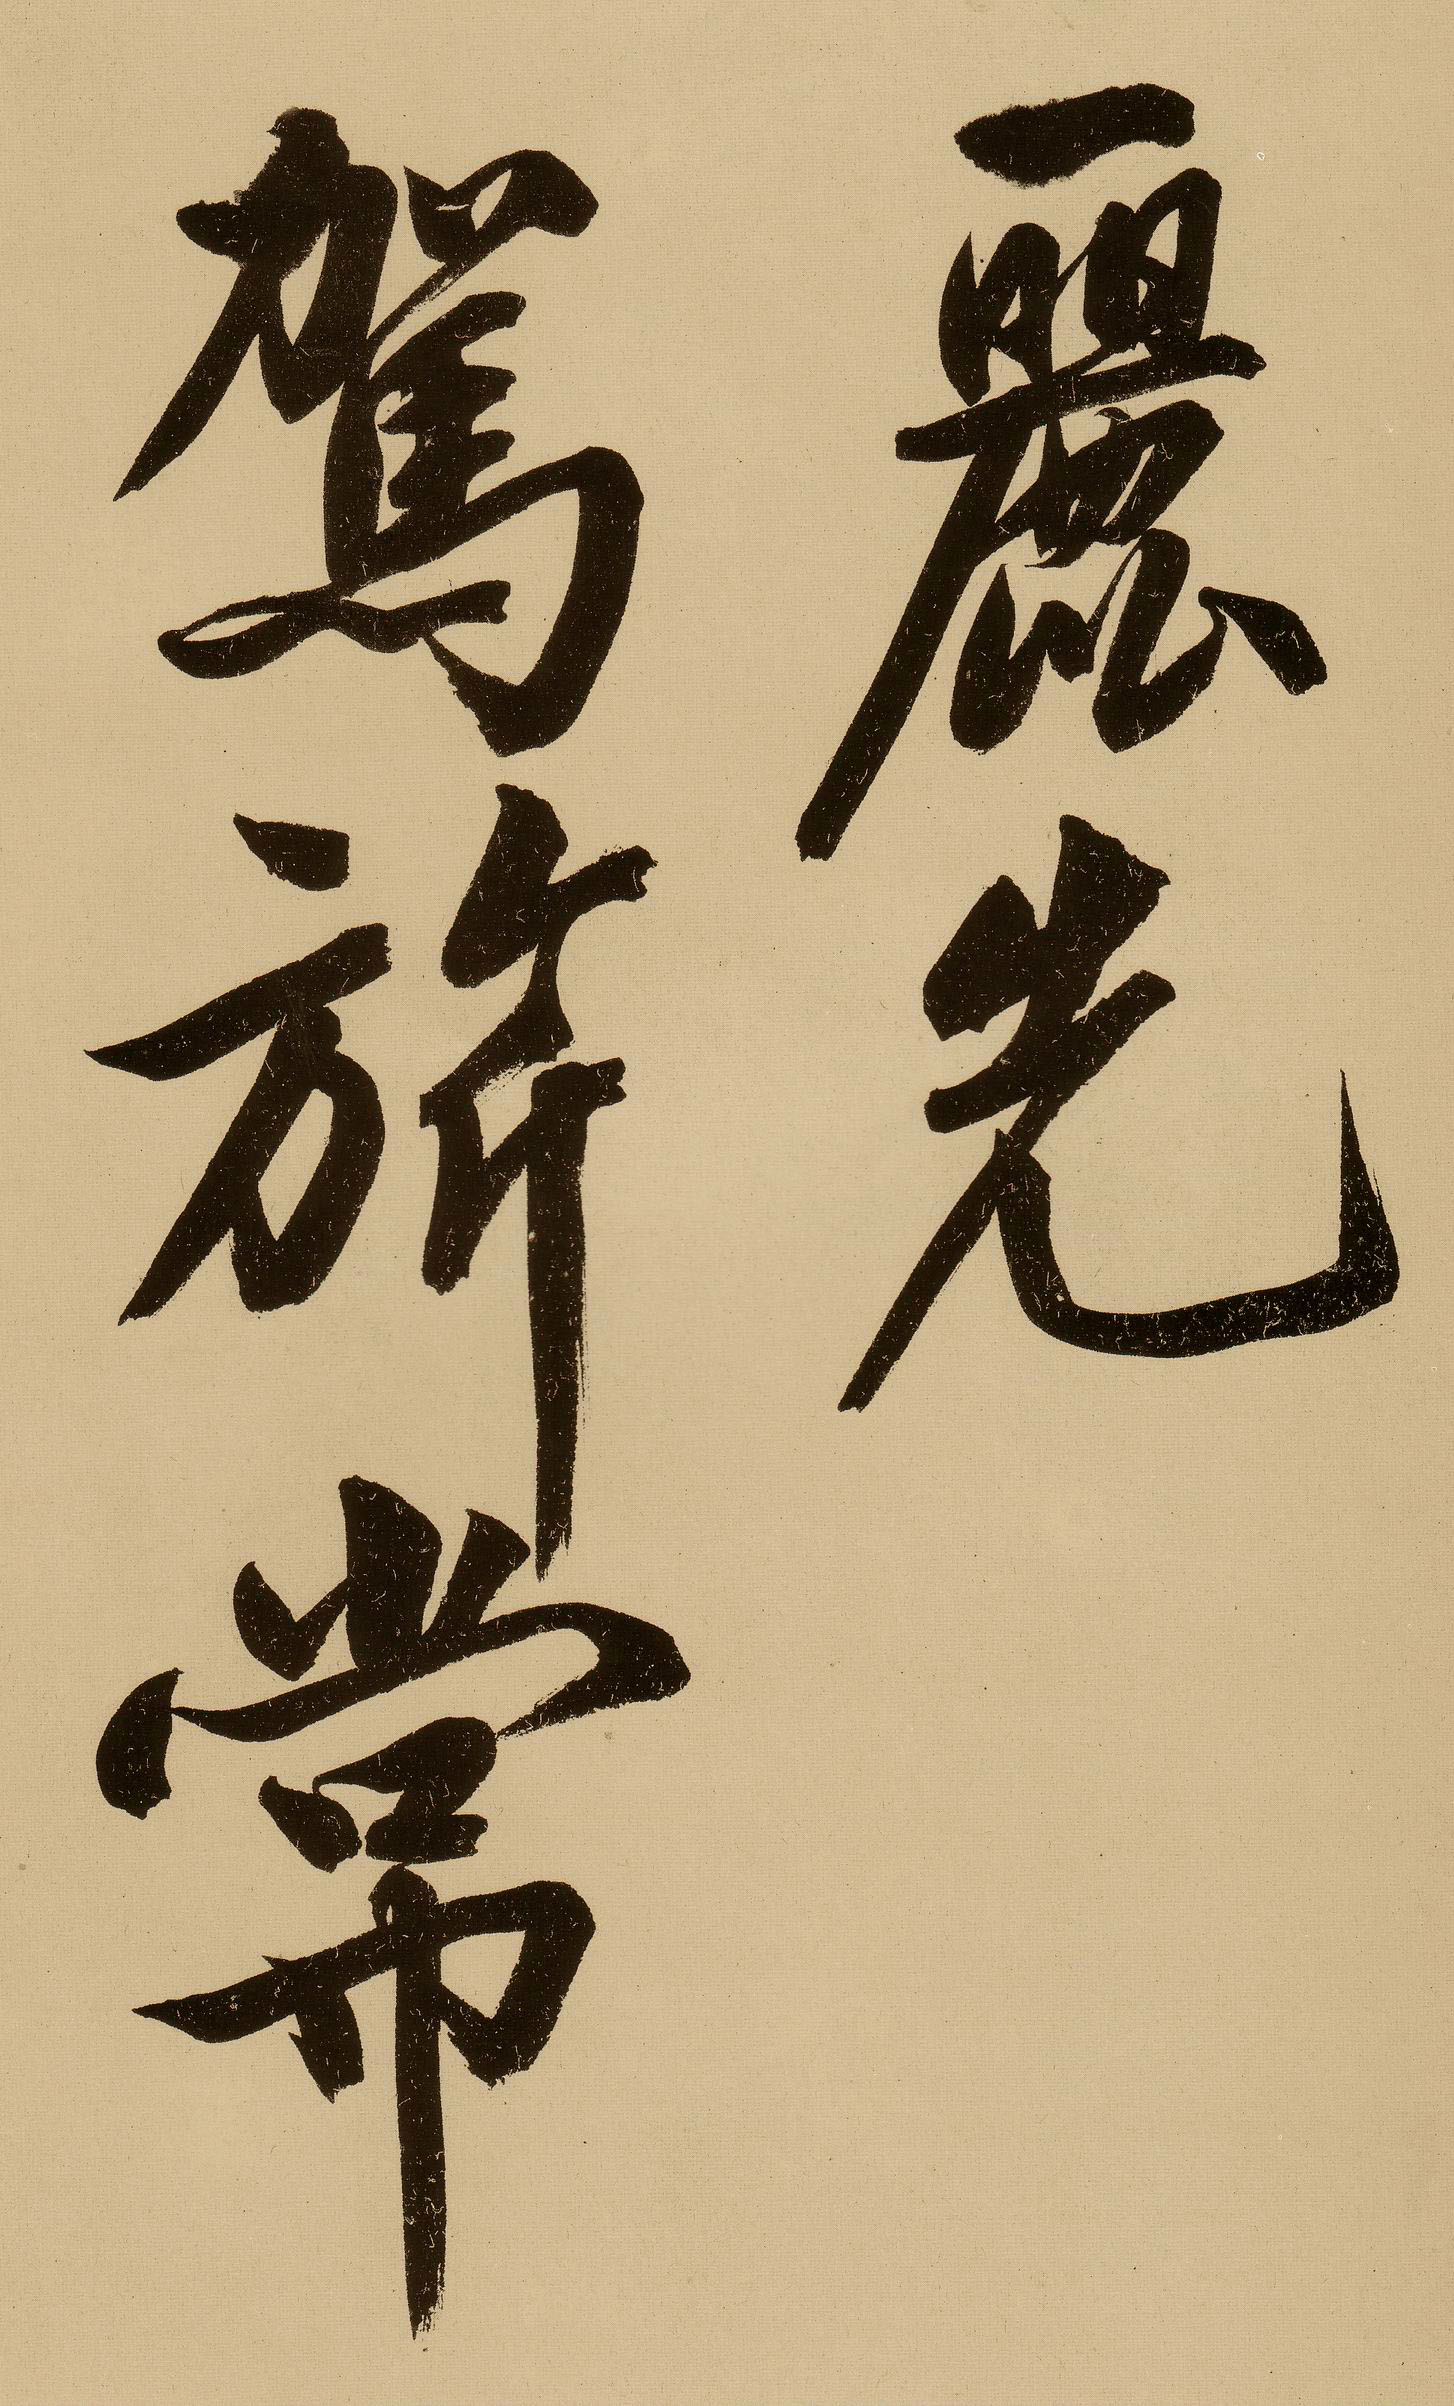 麗先
駕旂常